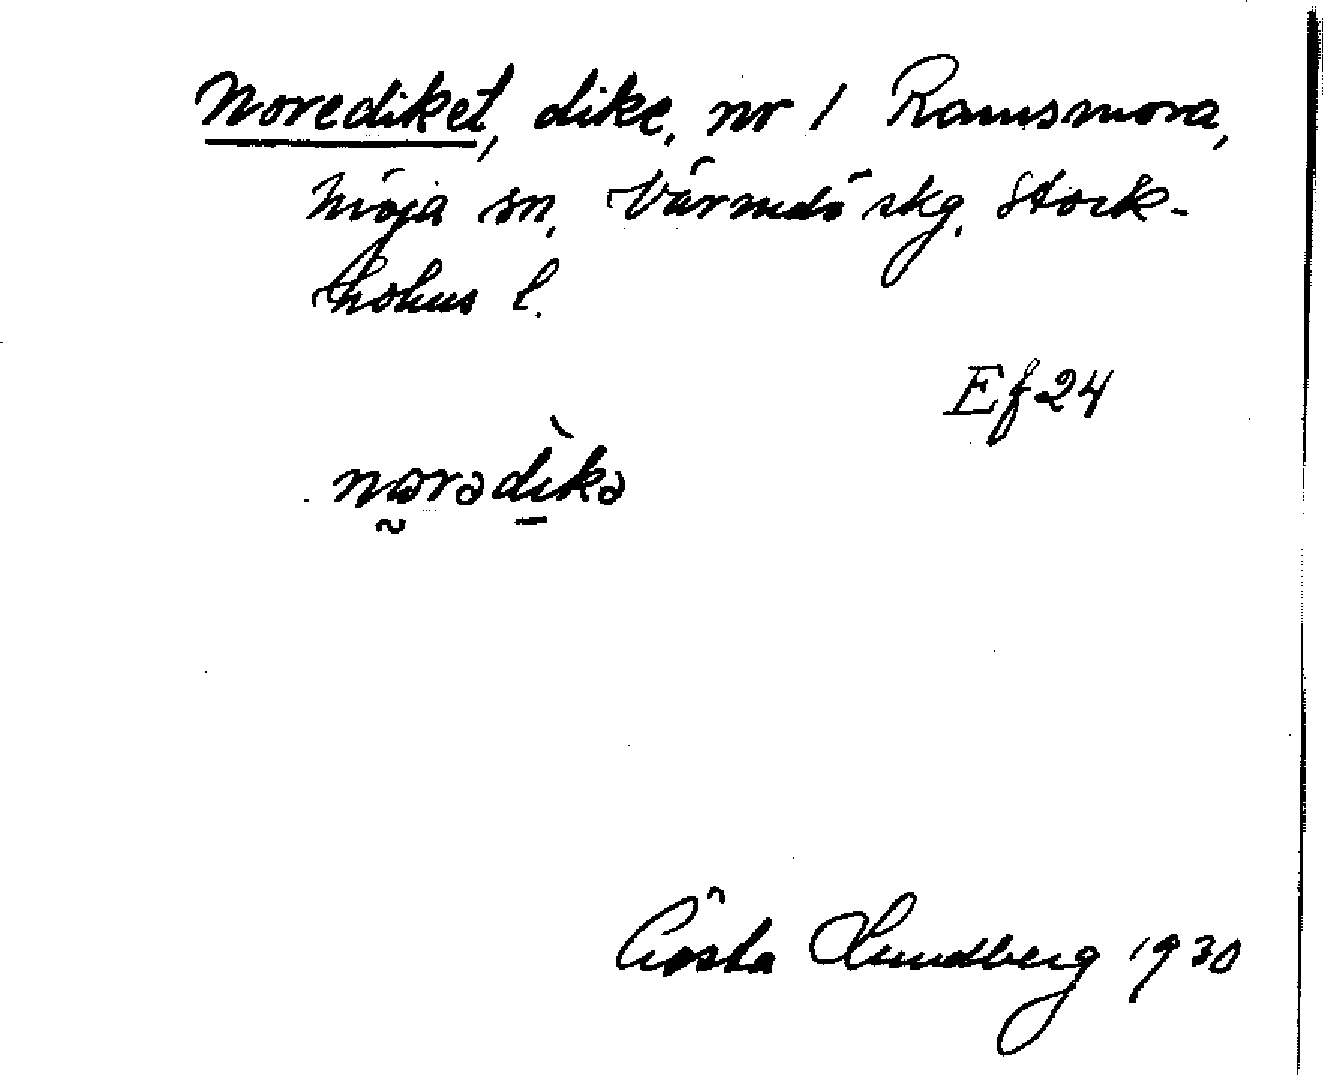 Norediket, dike, nr 1 Ramsmora,
Möja sn, Värmdö skg, Stock-
holms l.
Ef 24
norədìkə
Gösta Lundberg 1930